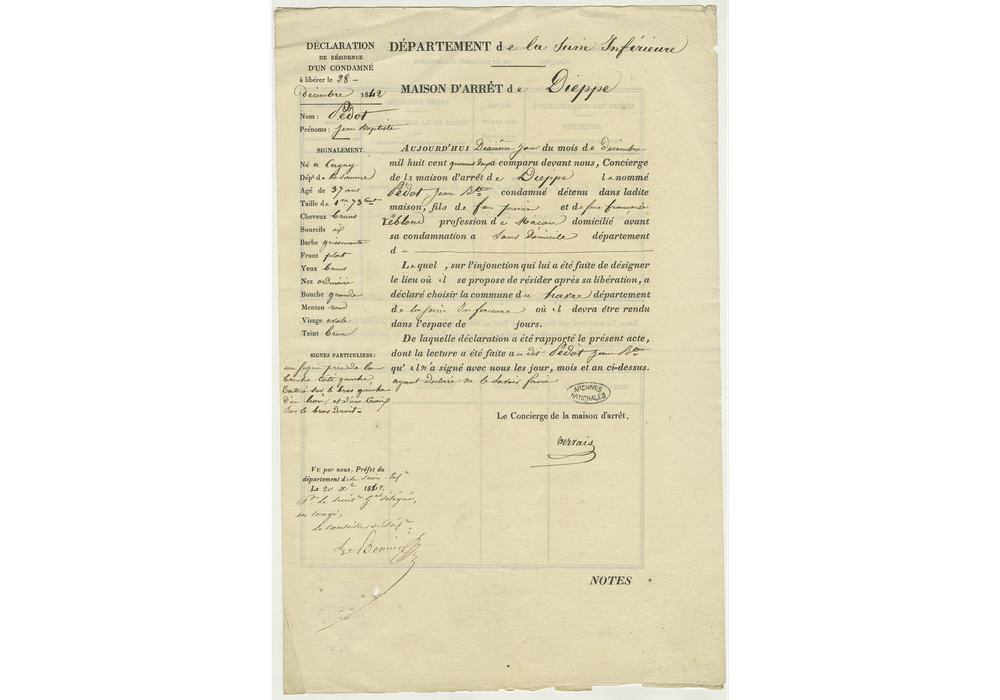 DÉCLARATION
DE RÉSIDENCE
D'UN CONDAMNÉ
à libérer le 28 -
décembre 1842
Nom : Pédot
Prénoms : Jean Baptiste
SIGNALEMENT.
Né à Cagny
Dépt de la Somme
Agé de 37 ans
Taille de 1 m 73 cent
Cheveux bruns
Sourcils id
Barbe grisonnante
Front plat
Yeux bruns
Nez ordinaire
Bouche grande
Menton rond
Visage ovale
Teint brun
SIGNES PARTICULIERS :
un signe près de la
bouche côté gauche
sur le bras gauche
d'un et d'une Croix
sur le bras Droit -
VU par nous, Préfet du
département de la Seine Infre
Le 1842.
Pr le Secrétre Gal délégué,
en congé,
Le Conseiller de Préfre
DÉPARTEMENT de la Seine Inférieure
MAISON D'ARRÊT de Dieppe
AUJOURD'HUI Dixième jour du mois de décembre
mil huit cent quarante deux a comparu devant nous, Concierge
de la maison d'arrêt de Dieppe le nommé
Pédot Jean Bte condamné détenu dans ladite
maison, fils de feu pierre et de feue françoise
Leblond profession de Maçon domicilié avant
sa condamnation à Sans Domicile département
d
Lequel, sur l'injonction qui lui a été faite de désigner
le lieu où il se propose de résider après sa libération, a
déclaré choisir la commune du havre département
de la Seine Inférieure où il devra être rendu
dans l'espace de jours.
De laquelle déclaration a été rapporté le présent acte,
dont la lecture a été faite au dit Pédot Jean Bte
qu'il n'a signé avec nous les jour, mois et an ci-dessus.
ayant déclaré ne le savoir faire
ARCHIVES
NATIONALES
Le Concierge de la maison d'arrêt,
NOTES